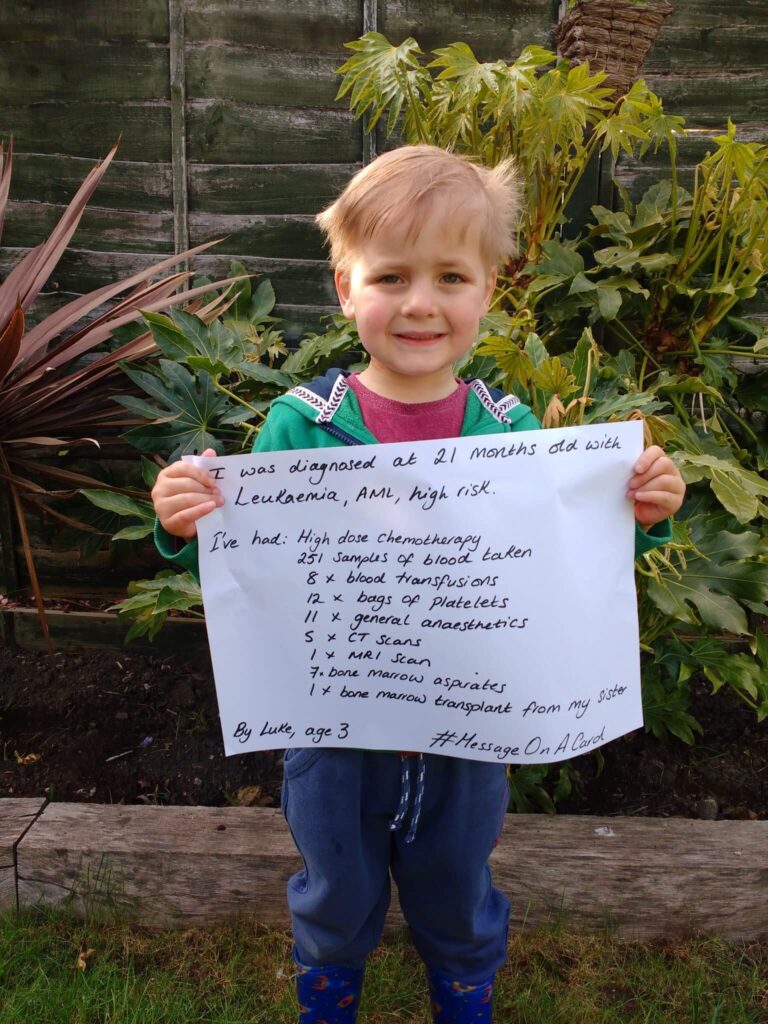 I was diagnosed at 21 months old with
Leukaemia, AML, high risk.
I've had: High dose chemotherapy
251 samples of blood taken
8 x blood transfusions
12 x bags of platelets
11 x general anaesthetics
5 x CT scans
1 x MRI scan
7x bone marrow aspirates
1 x bone marrow transplant from my sister
By Luke, age 3
#MessageOnACard